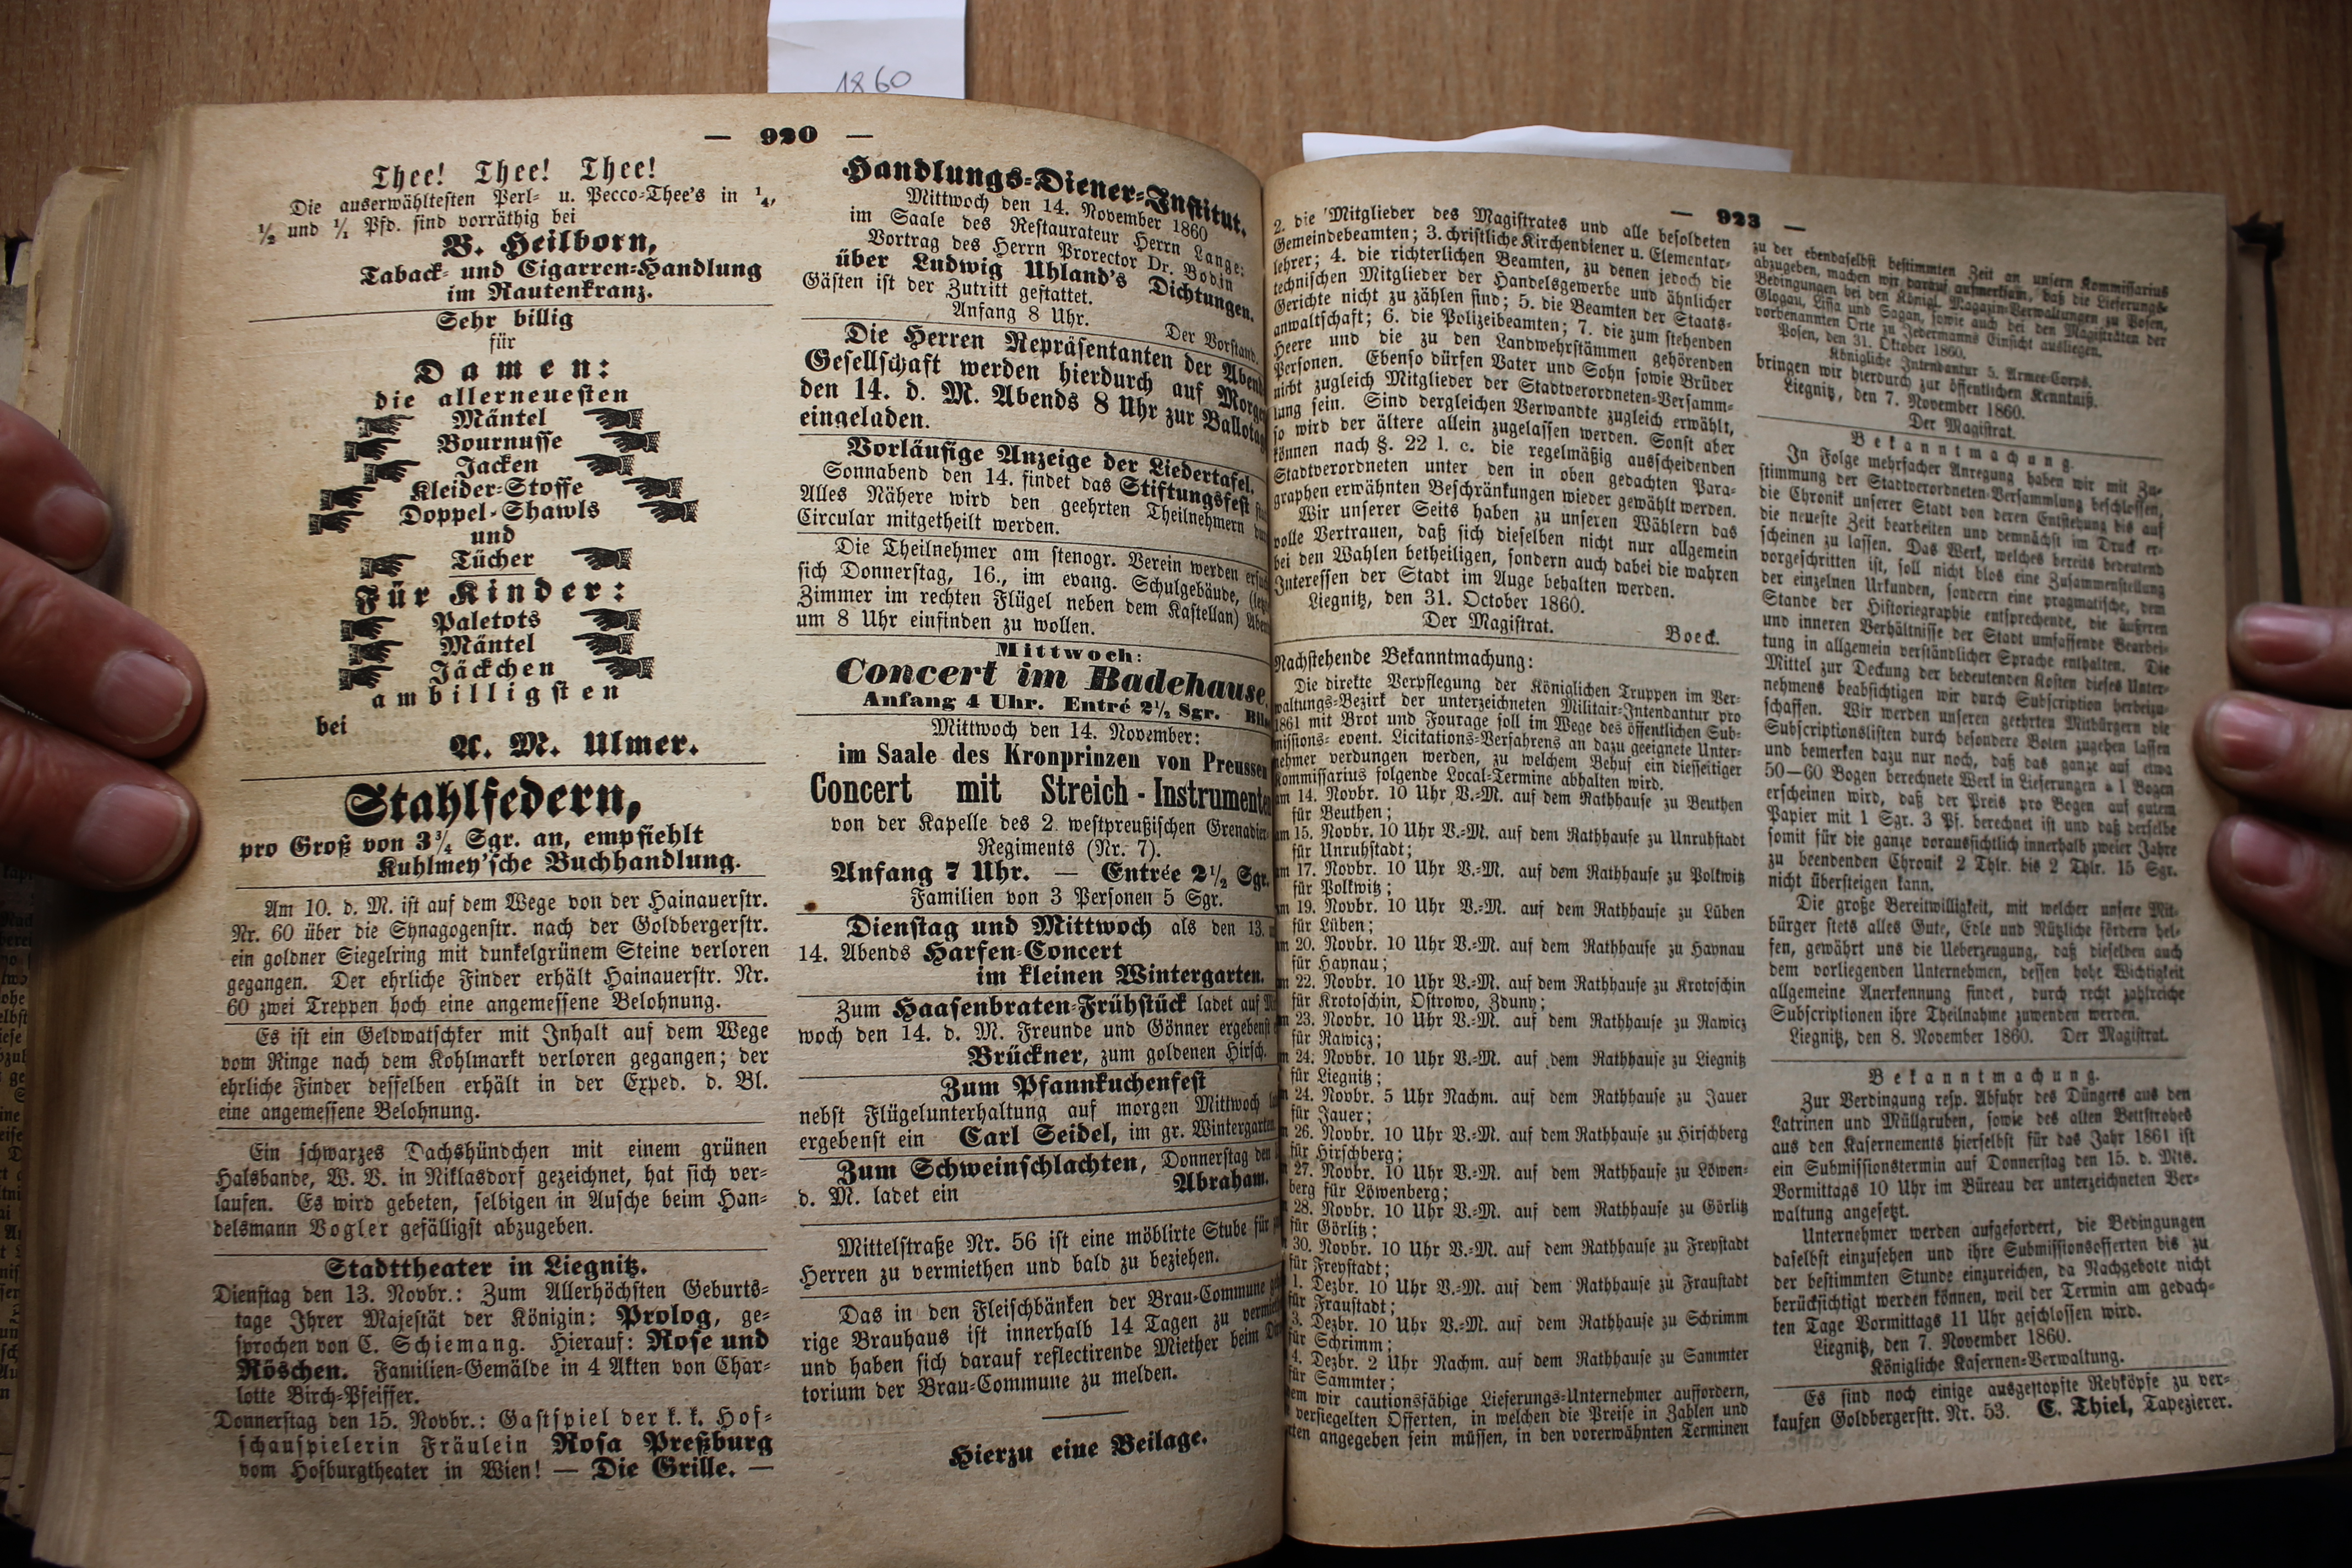 1860
— 920 —
Thee! Thee! Thee!
Die auserwähltesten Perl- u. Pecco-Thee's in ¼,
½ und ¹⁄₁ Pfd. sind vorräthig bei
B. Heilborn,
Taback- und Cigarren-Handlung
im Rautenkranz.
Sehr billig
für
Damen:
die allerneuesten
Mäntel
Bournusse
Jacken
Kleider-Stoffe
Doppel-Shawls
und
Tücher
Für Kinder:
Paletots
Mäntel
Jäckchen
am billigsten
bei
A. M. Ulmer.
Stahlfedern,
pro Groß von 3¾ Sgr. an, empfiehlt
Kuhlmey'sche Buchhandlung.
Am 10. d. M. ist auf dem Wege von der Hainauerstr.
Nr. 60 über die Synagogenstr. nach der Goldbergerstr.
ein goldner Siegelring mit dunkelgrünem Steine verloren
gegangen. Der ehrliche Finder erhält Hainauerstr. Nr.
60 zwei Treppen hoch eine angemessene Belohnung.
Es ist ein Geldwatschker mit Inhalt auf dem Wege
vom Ringe nach dem Kohlmarkt verloren gegangen; der
ehrliche Finder desselben erhält in der Exped. d. Bl.
eine angemessene Belohnung.
Ein schwarzes Dachshündchen mit einem grünen
Halsbande, W. V. in Niklasdorf gezeichnet, hat sich ver-
laufen. Es wird gebeten, selbigen in Ausche beim Han-
delsmann Vogler gefälligst abzugeben.
Stadttheater in Liegnitz.
Dienstag den 13. Novbr.: Zum Allerhöchsten Geburts-
tage Ihrer Majestät der Königin: Prolog, ge-
sprochen von C. Schiemang. Hierauf: Rose und
Röschen. Familien-Gemälde in 4 Akten von Char-
lotte Birch-Pfeiffer.
Donnerstag den 15. Novbr.: Gastspiel der k. k. Hof-
schauspielerin Fräulein Rosa Preßburg
vom Hofburgtheater in Wien! — Die Grille. —
Handlungs-Diener-Institut.
Mittwoch den 14. November 1860
im Saale des Restaurateur Herrn Lange:
Vortrag des Herrn Prorector Dr. Bodin
über Ludwig Uhland's Dichtungen.
Gästen ist der Zutritt gestattet.
Anfang 8 Uhr.
Der Vorstand.
Die Herren Repräsentanten der Abend
Gesellschaft werden hierdurch auf Morgen
den 14. d. M. Abends 8 Uhr zur Ballotag
eingeladen.
Vorläufige Anzeige der Liedertafel.
Sonnabend den 14. findet das Stiftungsfest
Alles Nähere wird den geehrten Theilnehmern
Circular mitgetheilt werden.
Die Theilnehmer am stenogr. Verein werden
sich Donnerstag, 16., im evang. Schulgebäude,
Zimmer im rechten Flügel neben dem Kastellan)
um 8 Uhr einfinden zu wollen.
Mittwoch:
Concert im Badehause,
Anfang 4 Uhr. Entré 2½ Sgr.
Mittwoch den 14. November:
im Saale des Kronprinzen von Preussen
Concert mit Streich-Instrumenten
von der Kapelle des 2. westpreußischen Grenadier-
Regiments (Nr. 7).
Anfang 7 Uhr. — Entrée 2½ Sgr.
Familien von 3 Personen 5 Sgr.
Dienstag und Mittwoch als den 13.
14. Abends Harfen-Concert
im kleinen Wintergarten.
Zum Haasenbraten-Frühstück ladet auf
woch den 14. d. M. Freunde und Gönner ergebenst
Brückner, zum goldenen Hirsch.
Zum Pfannkuchenfest
nebst Flügelunterhaltung auf morgen Mittwoch
ergebenst ein Carl Seidel, im gr. Wintergarten
Zum Schweinschlachten, Donnerstag den
d. M. ladet ein Abraham.
Mittelstraße Nr. 56 ist eine möblirte Stube für
Herren zu vermiethen und bald zu beziehen.
Das in den Fleischbänken der Brau-Commune
rige Brauhaus ist innerhalb 14 Tagen zu
und haben sich darauf reflectirende Miether beim
torium der Brau-Commune zu melden.
Hierzu eine Beilage.
— 923 —
2. die Mitglieder des Magistrates und alle besoldeten
Gemeindebeamten; 3. christliche Kirchendiener u. Elementar-
lehrer; 4. die richterlichen Beamten, zu denen jedoch die
technischen Mitglieder der Handelsgewerbe und ähnlicher
Gerichte nicht zu zählen sind; 5. die Beamten der Staats-
anwaltschaft; 6. die Polizeibeamten; 7. die zum stehenden
Heere und die zu den Landwehrstämmen gehörenden
Personen. Ebenso dürfen Vater und Sohn sowie Brüder
nicht zugleich Mitglieder der Stadtverordneten-Versamm-
lung sein. Sind dergleichen Verwandte zugleich erwählt,
so wird der ältere allein zugelassen werden. Sonst aber
können nach §. 22 l. c. die regelmäßig ausscheidenden
Stadtverordneten unter den in oben gedachten Para-
graphen erwähnten Beschränkungen wieder gewählt werden.
Wir unserer Seits haben zu unseren Wählern das
volle Vertrauen, daß sich dieselben nicht nur allgemein
bei den Wahlen betheiligen, sondern auch dabei die wahren
Interessen der Stadt im Auge behalten werden.
Liegnitz, den 31. October 1860.
Der Magistrat. Boeck.
Nachstehende Bekanntmachung:
Die direkte Verpflegung der Königlichen Truppen im Ver-
waltungs-Bezirk der unterzeichneten Militair-Intendantur pro
1861 mit Brot und Fourage soll im Wege des öffentlichen Sub-
missions- event. Licitations-Verfahrens an dazu geeignete Unter-
nehmer verdungen werden, zu welchem Behuf ein diesseitiger
Kommissarius folgende Local-Termine abhalten wird.
am 14. Novbr. 10 Uhr V.-M. auf dem Rathhause zu Beuthen
für Beuthen;
am 15. Novbr. 10 Uhr V.-M. auf dem Rathhause zu Unruhstadt
für Unruhstadt;
am 17. Novbr. 10 Uhr V.-M. auf dem Rathhause zu Polkwitz
für Polkwitz;
m 19. Novbr. 10 Uhr V.-M. auf dem Rathhause zu Lüben
für Lüben;
m 20. Novbr. 10 Uhr V.-M. auf dem Rathhause zu Haynau
für Haynau;
m 22. Novbr. 10 Uhr V.-M. auf dem Rathhause zu Krotoschin
für Krotoschin, Ostrowo, Zduny;
m 23. Novbr. 10 Uhr V.-M. auf dem Rathhause zu Rawicz
für Rawicz;
24. Novbr. 10 Uhr V.-M. auf dem Rathhause zu Liegnitz
für Liegnitz;
24. Novbr. 5 Uhr Nachm. auf dem Rathhause zu Jauer
für Jauer;
26. Novbr. 10 Uhr V.-M. auf dem Rathhause zu Hirschberg
für Hirschberg;
27. Novbr. 10 Uhr V.-M. auf dem Rathhause zu Löwen-
berg für Löwenberg;
28. Novbr. 10 Uhr V.-M. auf dem Rathhause zu Görlitz
für Görlitz;
30. Novbr. 10 Uhr V.-M. auf dem Rathhause zu Freystadt
für Freystadt;
1. Dezbr. 10 Uhr V.-M. auf dem Rathhause zu Fraustadt
für Fraustadt;
3. Dezbr. 10 Uhr V.-M. auf dem Rathhause zu Schrimm
für Schrimm;
4. Dezbr. 2 Uhr Nachm. auf dem Rathhause zu Sammter
für Sammter;
em wir cautionsfähige Lieferungs-Unternehmer auffordern,
versiegelten Offerten, in welchen die Preise in Zahlen und
ten angegeben sein müssen, in den vorerwähnten Terminen
zu der ebendaselbst bestimmten Zeit an unsern Kommissarius
abzugeben, machen wir darauf aufmerksam, daß die Lieferungs-
Bedingungen bei den Königl. Magazin-Verwaltungen zu Posen,
Glogau, Lissa und Sagan, sowie auch bei den Magisträten der
vorbenannten Orte zu Jedermanns Einsicht ausliegen.
Posen, den 31. Oktober 1860.
Königliche Intendantur 5. Armee-Corps.
bringen wir hierdurch zur öffentlichen Kenntniß.
Liegnitz, den 7. November 1860.
Der Magistrat.
Bekanntmachung.
In Folge mehrfacher Anregung haben wir mit Zu-
stimmung der Stadtverordneten-Versammlung beschlossen,
die Chronik unserer Stadt von deren Entstehung bis auf
die neueste Zeit bearbeiten und demnächst im Druck er-
scheinen zu lassen. Das Werk, welches bereits bedeutend
vorgeschritten ist, soll nicht blos eine Zusammenstellung
der einzelnen Urkunden, sondern eine pragmatische, dem
Stande der Historiographie entsprechende, die äußeren
und inneren Verhältnisse der Stadt umfassende Bearbei-
tung in allgemein verständlicher Sprache enthalten. Die
Mittel zur Deckung der bedeutenden Kosten dieses Unter-
nehmens beabsichtigen wir durch Subscription herbeizu-
schaffen. Wir werden unseren geehrten Mitbürgern die
Subscriptionslisten durch besondere Boten zugehen lassen
und bemerken dazu nur noch, daß das ganze auf etwa
50—60 Bogen berechnete Werk in Lieferungen a 1 Bogen
erscheinen wird, daß der Preis pro Bogen auf gutem
Papier mit 1 Sgr. 3 Pf. berechnet ist und daß derselbe
somit für die ganze voraussichtlich innerhalb zweier Jahre
zu beendenden Chronik 2 Thlr. bis 2 Thlr. 15 Sgr.
nicht übersteigen kann.
Die große Bereitwilligkeit, mit welcher unsere Mit-
bürger stets alles Gute, Edle und Nützliche fördern hel-
fen, gewährt uns die Ueberzeugung, daß dieselben auch
dem vorliegenden Unternehmen, dessen hohe Wichtigkeit
allgemeine Anerkennung findet, durch recht zahlreiche
Subscriptionen ihre Theilnahme zuwenden werden.
Liegnitz, den 8. November 1860. Der Magistrat.
Bekanntmachung.
Zur Verdingung resp. Abfuhr des Düngers aus den
Latrinen und Müllgruben, sowie des alten Bettstrohes
aus den Kasernements hierselbst für das Jahr 1861 ist
ein Submissionstermin auf Donnerstag den 15. d. Mts.
Vormittags 10 Uhr im Büreau der unterzeichneten Ver-
waltung angesetzt.
Unternehmer werden aufgefordert, die Bedingungen
daselbst einzusehen und ihre Submissionsofferten bis zu
der bestimmten Stunde einzureichen, da Nachgebote nicht
berücksichtigt werden können, weil der Termin am gedach-
ten Tage Vormittags 11 Uhr geschlossen wird.
Liegnitz, den 7. November 1860.
Königliche Kasernen-Verwaltung.
Es sind noch einige ausgestopfte Rehköpfe zu ver-
kaufen Goldbergerstr. Nr. 53. C. Thiel, Tapezierer.